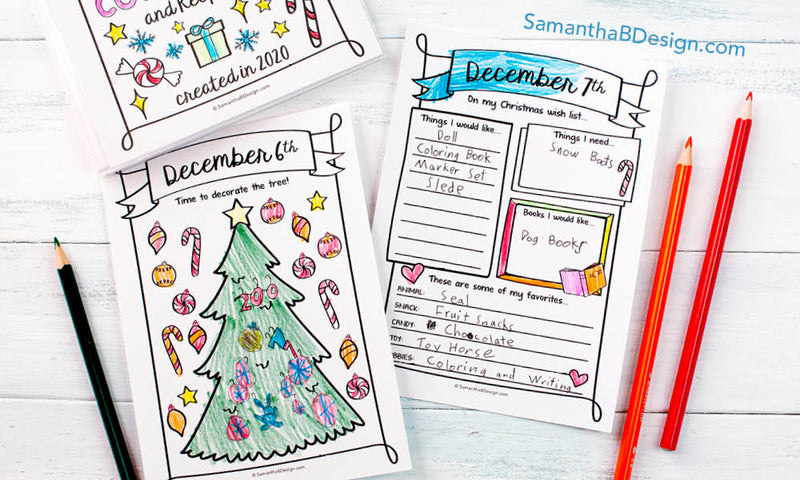 SamanthaBDesign.com
and Keep
created in 2020
© SamanthaBDesign.com
December 6th
Time to decorate the tree!
© SamanthaBDesign.com
December 7th
On my Christmas wish list...
Things I would like...
Doll
Coloring Book
Marker Set
Slede
Things I need...
Snow Boots
Books I would like...
Dog Books
These are some of my favorites...
ANIMAL: Seal
SNACK: Fruit Snacks
CANDY: Chocolate
TOY: Toy Horse
BBIES: Coloring and Writing
© SamanthaBDesign.com